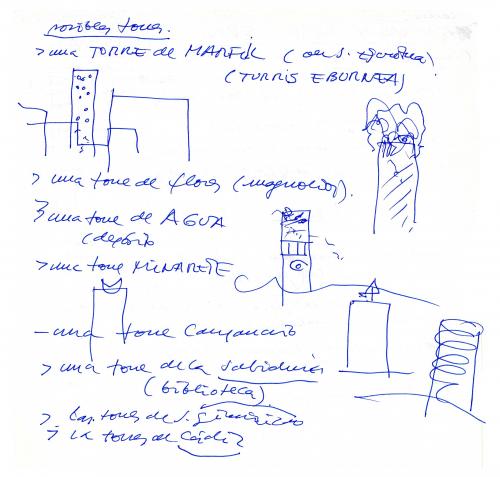 posibles torres.
> una TORRE de MARFIL (
(TURRIS EBURNEA)
> una torre de flores (magnolios).
> una torre de AGUA
(depósito
> una torre MINARETE
- una torre Campanario
> una torre de la sabiduría
(biblioteca)
> las torres de S. Gimignano
> las torres de Cádiz